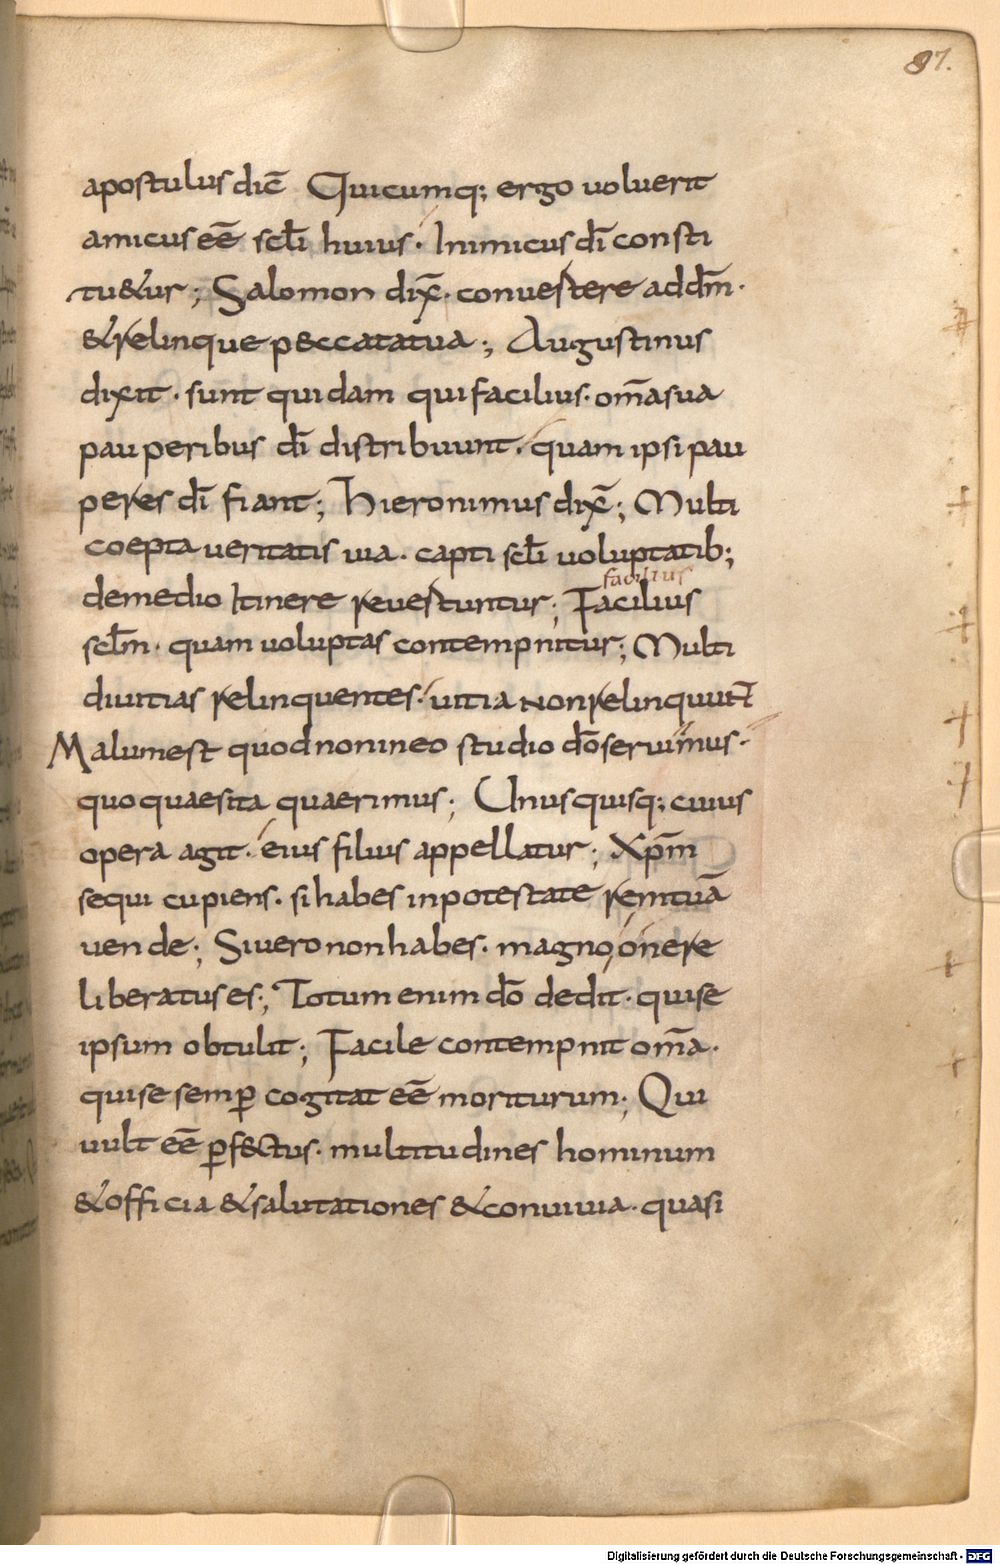 87.
apostulus dic̄ Quicumq; ergo uoluerit
amicus eē sc̄li huius · Inimicus dī consti
tu&ur ; Salomon dix̄ · conuestere ad dm̄ ·
& relinque p&ccata tua ; Augustinus
dixit · sunt quidam qui facilius · om̄a sua
pauperibus dī distribuunt · quam ipsi pau
peres dī fiant ; Hieronimus dix̄ ; Multi
coepta ueritatis uia · capti sc̄li uoluptatib;
facilius
de medio Itinere reuestuntur ; Facilius
sc̄lm · quam uoluptas contempnitur ; Multi
diuitias relinquentes · uitia non relinquunt
Malum est quod non in eo studio dō seruimus ·
quo quaesita quaerimus ; Unusquisq; cuius
opera agit · eius filius appellatur ; Xp̄m
sequi cupiens · si habes in potestate rem tuā
uende ; Si uero non habes · magno onere
liberatus es ; Totum enim dō dedit · qui se
ipsum obtulit ; Facile contempnit om̄a ·
qui se semp̄ cogitat eē moriturum ; Qui
uult eē p̄f&ctus · multitudines hominum
& officia & salutationes & conuiuia · quasi
Digitalisierung gefördert durch die Deutsche Forschungsgemeinschaft - DFG